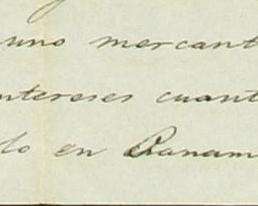 uno mercant
intereses cuant
do en Panam